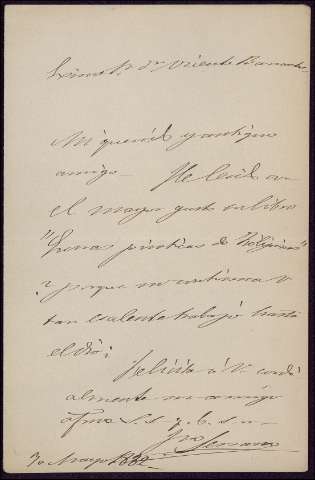 Exmo Sr. Dn Vicente Barrantes
Mi querido y antiguo
amigo. He leido con
el mayor gusto su libro
"Guerras piraticas de Filipinas"
? porque no continua V
tan exalente trabajo hasta
el dia?
Felicita á V. cordi
almente su amigo
afmo S. S. q. b. s. m.
Serrano
30 Mayo 1882